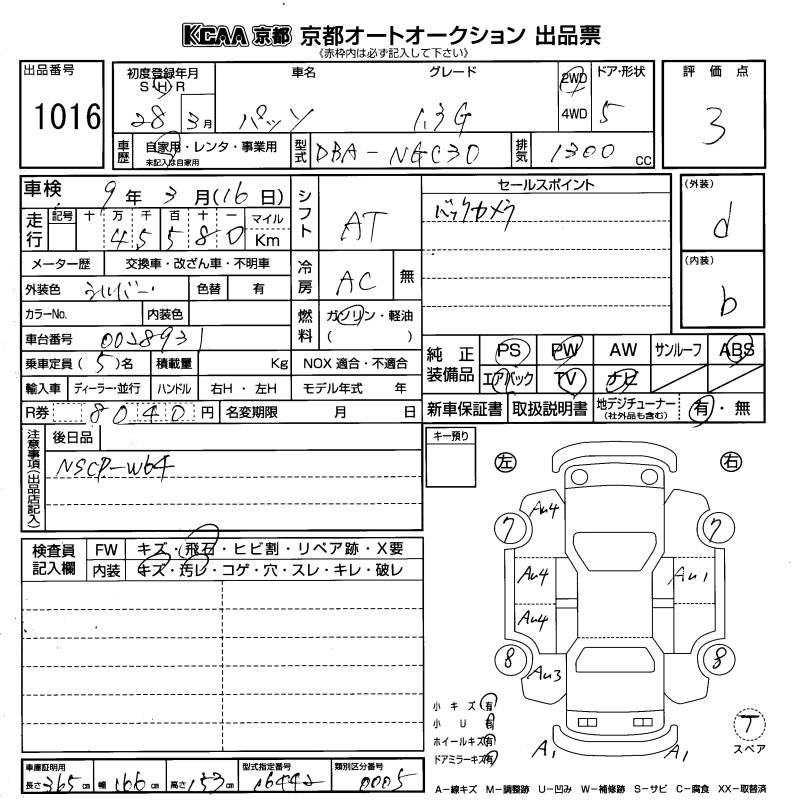 KCAA 京都 京都オートオークション 出品票
《赤枠内は必ず記入して下さい》
出品番号 初度登録年月 車名 グレード 2WD ドア・形状 評価点
S H R
1016 28 3月 パッソ 1.3G 4WD 5 3
車歴 自家用・レンタ・事業用 型式 DBA-NGC30 排気 1300 CC
未記入は自家用
車検 9年 3月(16日) シフト AT セールスポイント (外装)
走行 記号 十 万 千 百 十 一 マイル バックカメラ d
45580 Km
メーター歴 交換車・改ざん車・不明車 冷房 AC 無 (内装)
外装色 シルバー 色替 有 b
カラーNo. 内装色 燃料 ガソリン・軽油
車台番号 0028931 ( )
乗車定員(5)名 積載量 Kg NOX 適合・不適合 純正装備品 PS PW AW サンルーフ ABS
輸入車 ディーラー・並行 ハンドル 右H・左H モデル年式 年 エアバック TV ナビ
R券 8040円 名変期限 月 日 新車保証書 取扱説明書 地デジチューナー(社外品も含む) 有・無
注意事項(出品店記入) 後日品 キー預り
NSCP-W64 左 右
検査員記入欄 FW キズ・飛石・ヒビ割・リペア跡・X要
内装 キズ・汚レ・コゲ・穴・スレ・キレ・破レ
AU4
7 7
AU4 AU1
AU4
8 8
AU3
小キズ 有
小U 有
ホイールキズ 有
ドアミラーキズ 有
A1 A1
T
スペア
車庫証明用 型式指定番号 類別区分番号
長さ365cm 幅166cm 高さ153cm 16442 0005
A-線キズ M-調整跡 U-凹み W-補修跡 S-サビ C-腐食 XX-取替済